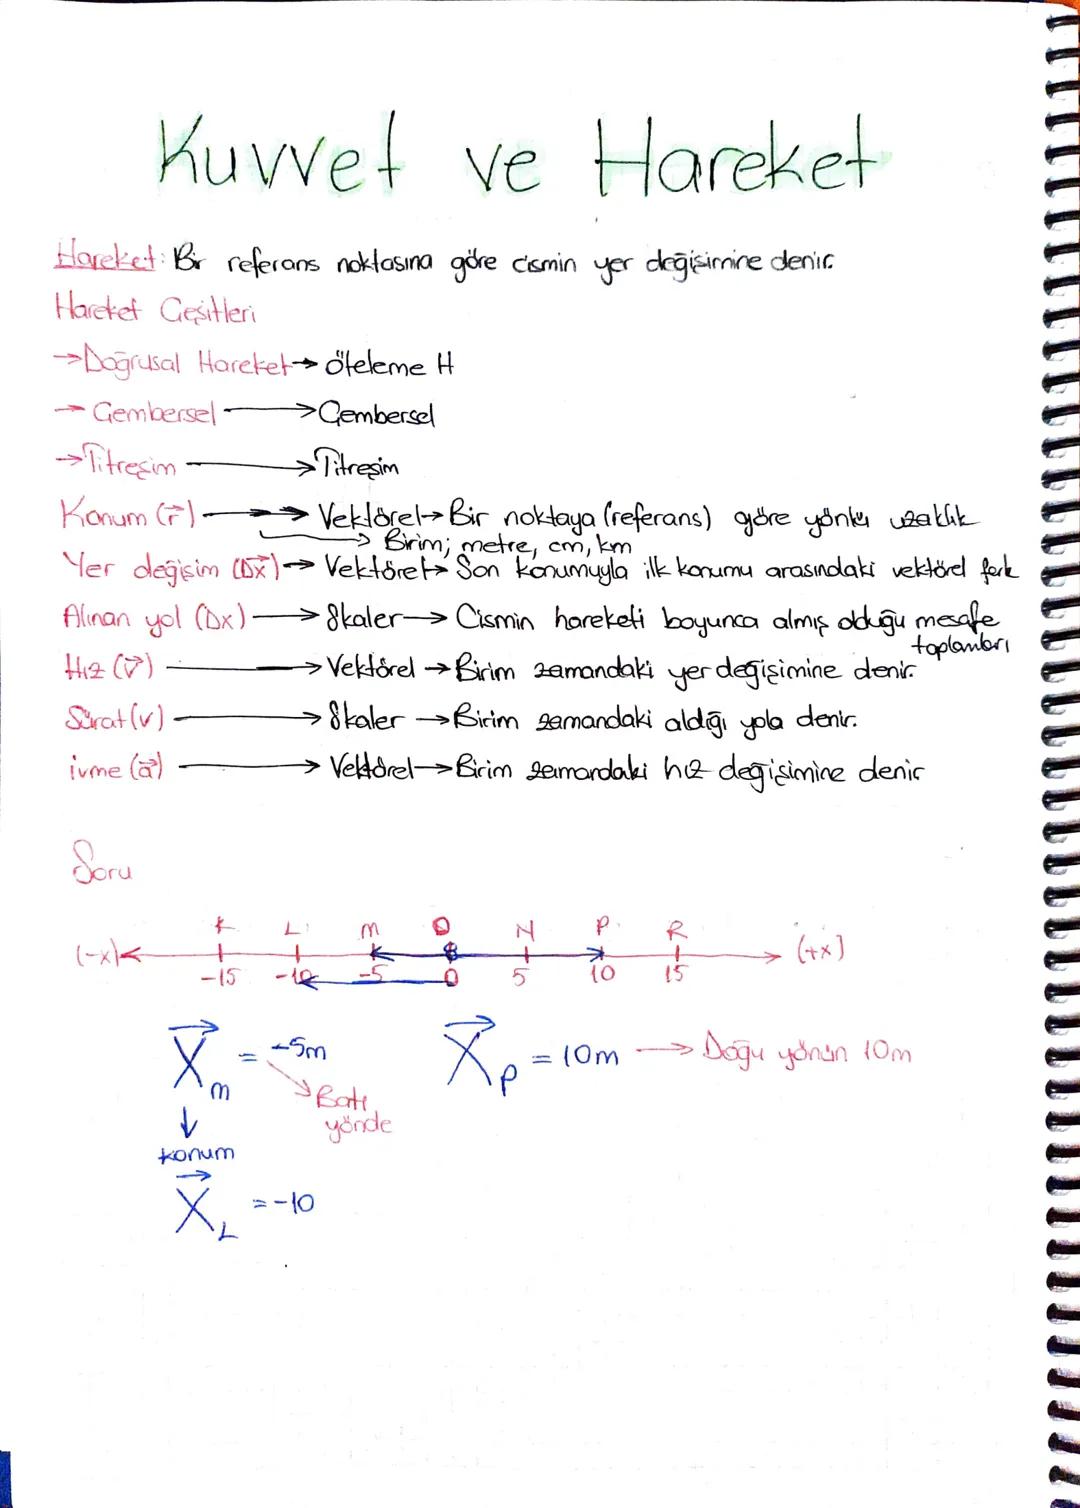 Kuvvet ve Hareket
Hareket: Bir referans noktasına göre cismin yer değişimine denir.
Hareket Çeşitleri
→Doğrusal Hareket→ öteleme H
→ Çembersel → Çembersel
→Titreşim → Titreşim
Konum (r⃗) → Vektörel→ Bir noktaya (referans) göre yönlü uzaklık
→ Birim; metre, cm, km
Yer değişim (Δx⃗)→ Vektörel→ Son konumuyla ilk konumu arasındaki vektörel fark
Alınan yol (Δx) → Skaler → Cismin hareketi boyunca almış olduğu mesafe
toplamları
Hız (v⃗) → Vektörel → Birim zamandaki yer değişimine denir.
Sürat (v) → Skaler → Birim zamandaki aldığı yola denir.
ivme (a⃗) → Vektörel → Birim zamandaki hız değişimine denir
Soru
K L M O N P R
(-x) (+x)
-15 -10 -5 0 5 10 15
X⃗m = -5m X⃗p = 10m → Doğu yönün 10m
Batı
yönde
↓
konum
X⃗L = -10